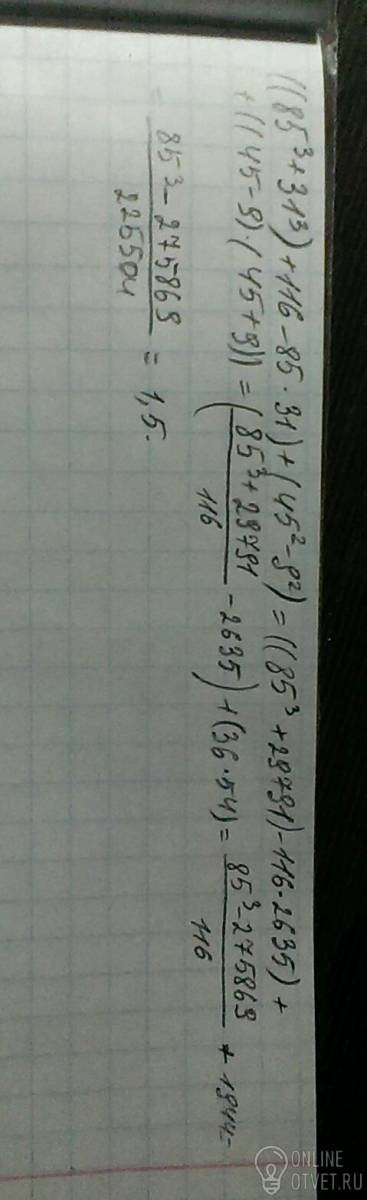 (((85³+31³)+116-85·31)+(45²-9²)=(((85³+29791)-116·2635)+
+(((45-9)(45+9))=(85³+29791/116-2635)+(36·54)=85³-275869/116+1944=
=85³-275869/225504=1,5.
ONLINE
OTVET.RU